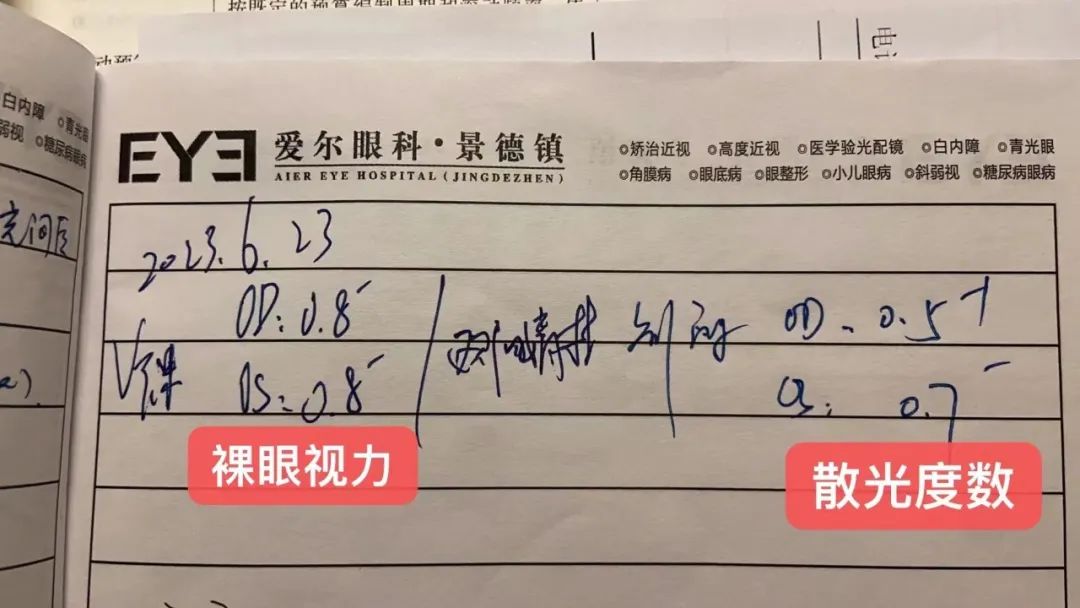 按既定的预算编制周期和滚动频率
动预
电
白内障 青光眼
弱视 糖尿病眼病
EYE 爱尔眼科·景德镇
AIER EYE HOSPITAL (JINGDEZHEN)
矫治近视 高度近视 医学验光配镜 白内障 青光眼
角膜病 眼底病 眼整形 小儿眼病 斜弱视 糖尿病眼病
2023.6.23
OD: 0.8⁻
V裸
OS: 0.8⁻
OD 0.5⁻¹
OS: 0.7⁻
裸眼视力
散光度数